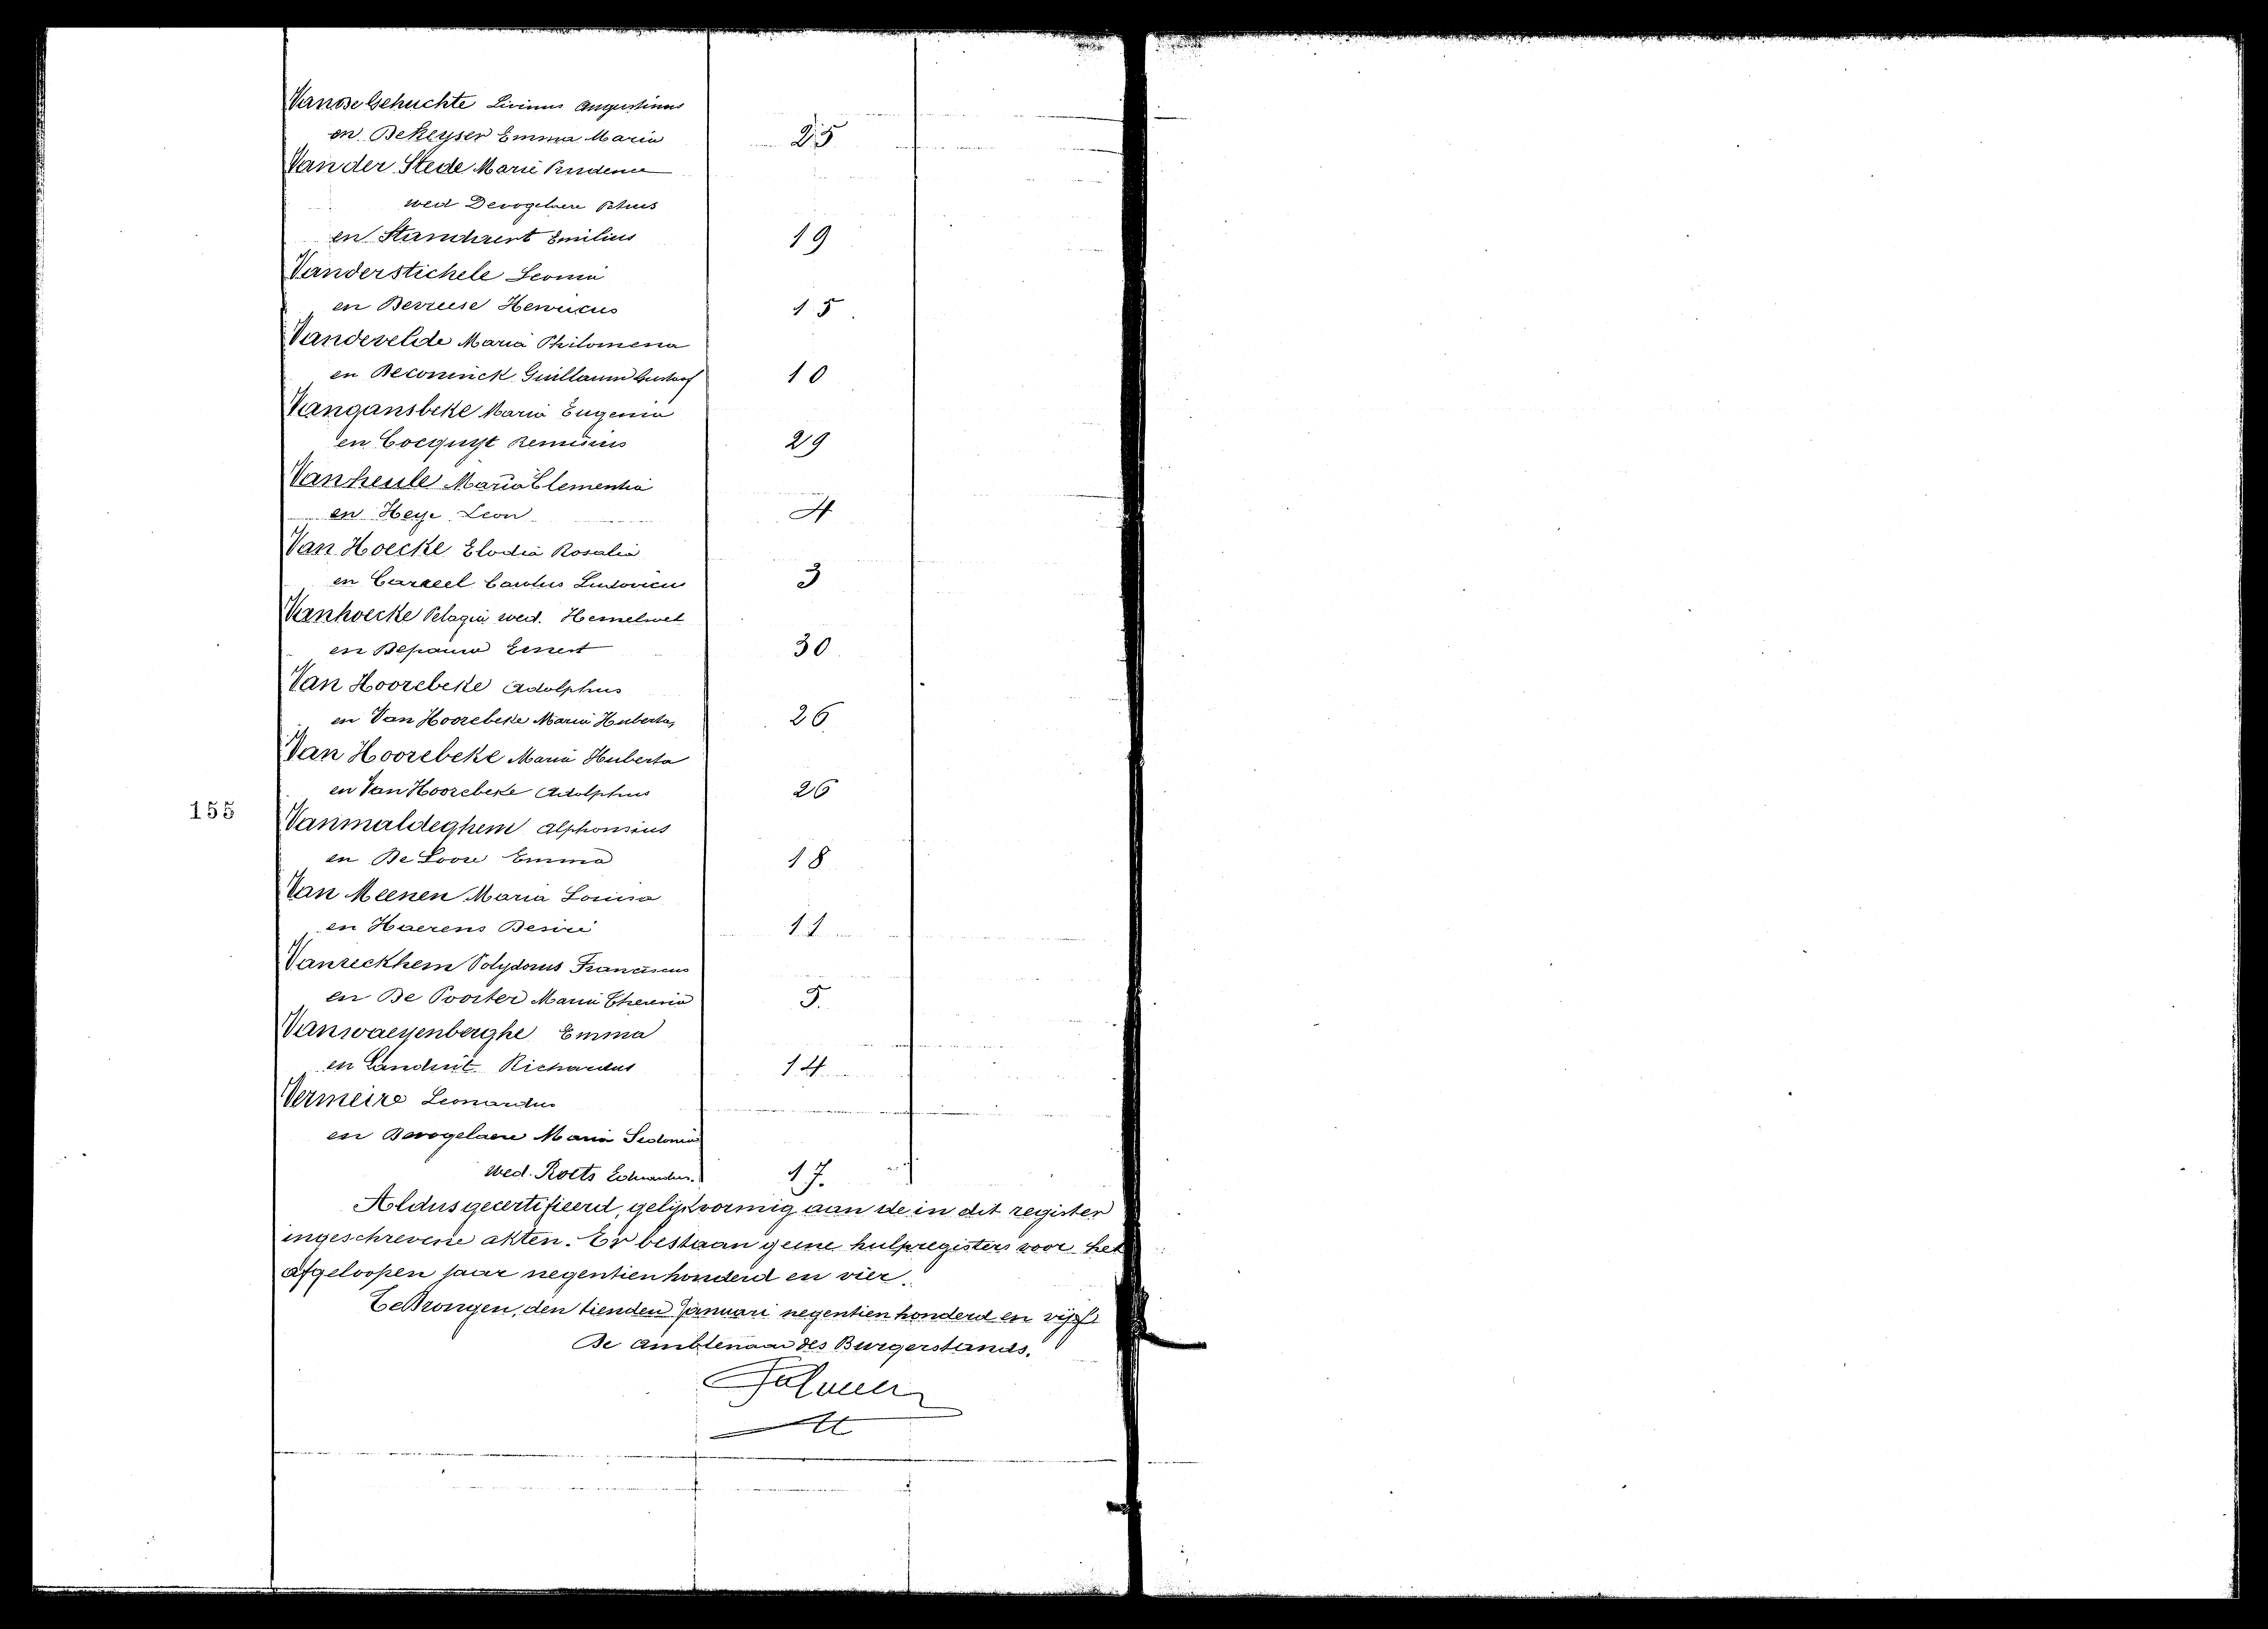 Van De Gehuchte Livinus Augustinus
en De Keyser Emma Maria 25
Van der Stede Marie Prudence
wed Devogelaere Petrus
en Standaert Emilius 19
Vanderstichele Leonia
en Devreese Henricus 15
Vandevelde Maria Philomena
en Deconinck Guillaum Gustaaf 10
Vangansbeke Maria Eugenia
en Cocquyt Remisius 29
Vanheule Maria Clementia
en Heye Leon 4
Van Hoecke Elodia Rosalia
en Carreel Carolus Ludovicus 3
Vanhoecke Pelagia wed. Hemelsoet
en Depauw Ernest 30
Van Hoorebeke Adolphus
en Van Hoorebeke Maria Huberta 26
Van Hoorebeke Maria Huberta
en Van Hoorebeke Adolphus 26
155
Vanmaldeghem Alphonsius
en De Loore Emma 18
Van Meenen Maria Louisa
en Haerens Desiré 11
Vanreckhem Polydorus Franciscus
en De Poorter Maria Theresia 5.
Vanwaeyenberghe Emma
en Landuit Richardus 14
Vermeire Leonardus
en Devogelaere Maria Sidonia
wed. Roets Eduardus. 17.
Aldus gecertifieerd, gelijkvormig aan de in dit register
ingeschrevene akten. Er bestaan geene hulpregisters voor het
afgeloopen jaar negentienhonderd en vier.
Te Drongen, den tienden Januari negentienhonderd en vijf
De Ambtenaar des Burgerstands.